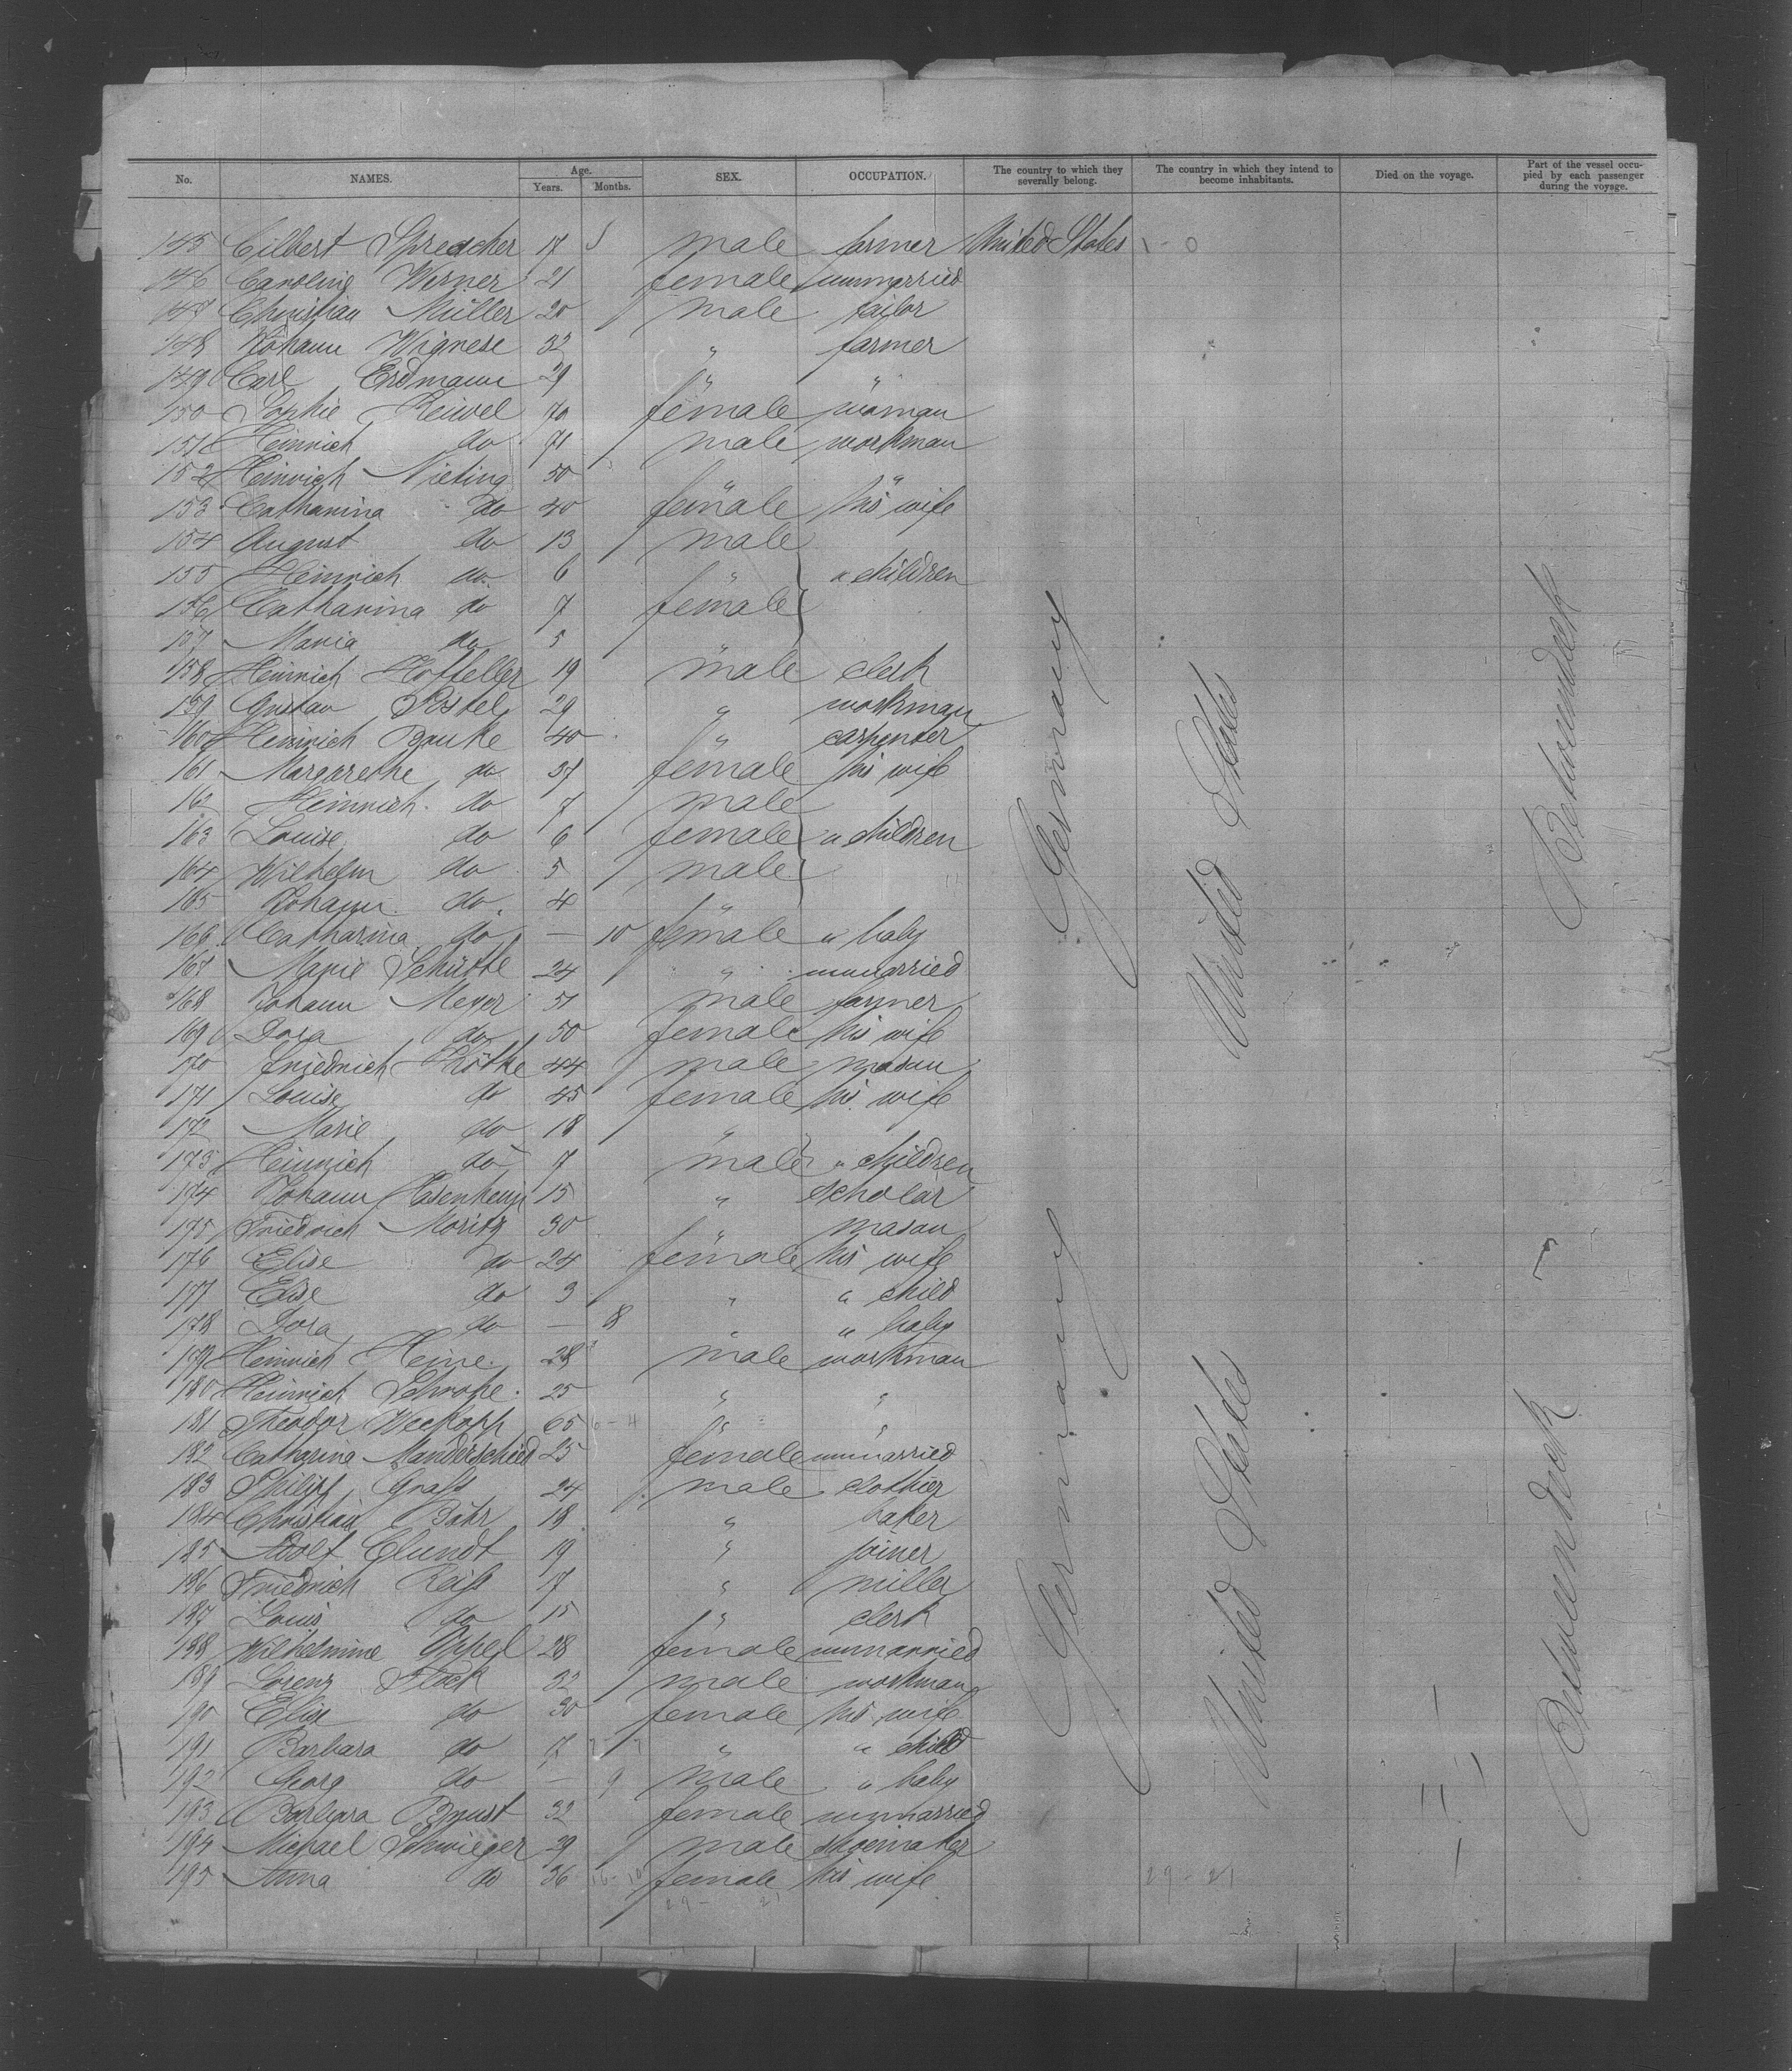 No. NAMES. Age. Years. Months. SEX. OCCUPATION. The country to which they severally belong. The country in which they intend to become inhabitants. Died on the voyage. Part of the vessel occupied by each passenger during the voyage.
145 Gilbert Sprecher 17 male farmer United States 1-0
146 Caroline Werner 21 female unmarried
147 Christian Müller 20 male tailor
148 Johann Wignese 32 " farmer
149 Carl Erdmann 29 " "
150 Sophie 70 female woman
151 Heinrich do 71 male workman
152 Heinrich Nieting 50 " "
153 Catharina do 40 female his wife
154 August do 13 male
155 Heinrich do 6 " " children
156 Catharina do 7 female
157 Maria do 5 "
158 Heinrich Hoffeller 19 male clerk
159 Gustav Postel 29 " workman
160 Heinrich Banke 40 " carpenter
161 Margarethe do 37 female his wife
162 Heinrich do 7 male
163 Louise do 6 female " children
164 Wilhelm do 5 male
165 Johann do 4 "
166 Catharina do — 10 female " baby
167 Marie Schütte 24 " unmarried
168 Johann Meyer 51 male farmer
169 Dora do 50 female his wife
170 Friedrich Köthe 44 male mason
171 Louise do 45 female his wife
172 Marie do 18 "
173 Heinrich do 7 male " children
174 Johann 15 " scholar
175 Friedrich Moritz 30 " mason
176 Elise do 24 female his wife
177 Else do 3 " " child
178 Dora do — 8 " " baby
179 Heinrich Heine 28 male workman
180 Heinrich Schrape 25 " "
181 Theodor Weekopp 65 " "
182 Catharina Manderschied 25 female unmarried
183 Philipp Grass 24 male clothier
184 Christian Bähr 18 " baker
185 Adolf Glundt 19 " joiner
186 Friedrich Reiß 17 " miller
187 Louis do 15 " clerk
188 Wilhelmine Appel 28 female unmarried
189 Lorenz Flack 32 male workman
190 Elise do 30 female his wife
191 Barbara do 7 " " child
192 Georg do — 9 male " baby
193 Barbara Brust 32 female unmarried
194 Michael Schwieger 29 male shoemaker
195 Anna do 36 female his wife
29-21 29-21
Germany
United States
Betweendeck
Germany
United States
Betweendeck